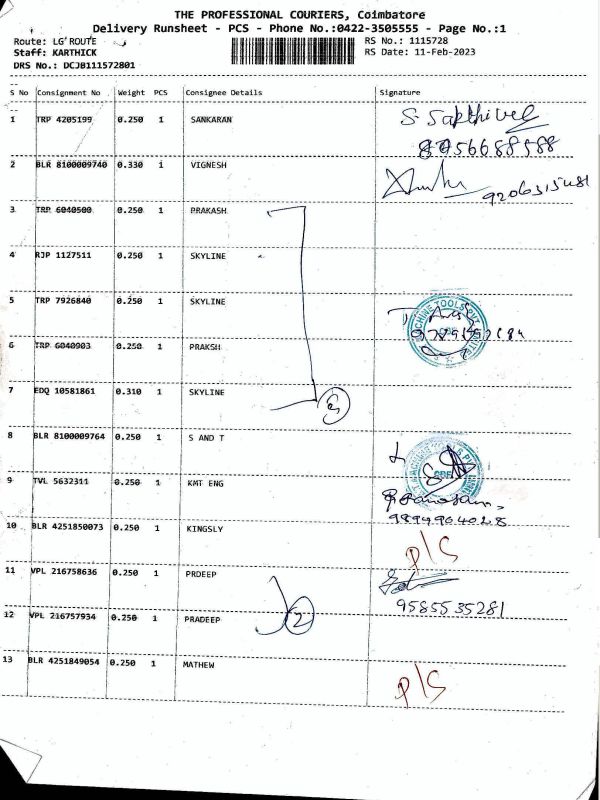 THE PROFESSIONAL COURIERS, Coimbatore
Delivery Runsheet - PCS - Phone No.:0422-3505555 - Page No.:1
Route: LG ROUTE
RS No.: 1115728
Staff: KARTHICK
RS Date: 11-Feb-2023
DRS No.: DCJB111572801
S No Consignment No Weight PCS Consignee Details Signature
1 TRP 4205199 0.250 1 SANKARAN S. Sakthivel
8056688588
2 BLR 8100009740 0.330 1 VIGNESH
9206315481
3 TRP 6040500 0.250 1 PRAKASH
4 RJP 1127511 0.250 1 SKYLINE
5 TRP 7926840 0.250 1 SKYLINE
6 TRP 6040903 0.250 1 PRAKSH
7 EDQ 10581861 0.310 1 SKYLINE
5
8 BLR 8100009764 0.250 1 S AND T
9 TVL 5632311 0.250 1 KMT ENG
9894904028
10 BLR 4251850073 0.250 1 KINGSLY P/S
11 VPL 216758636 0.250 1 PRDEEP
9585535281
12 VPL 216757934 0.250 1 PRADEEP
2
13 BLR 4251849054 0.250 1 MATHEW P/S